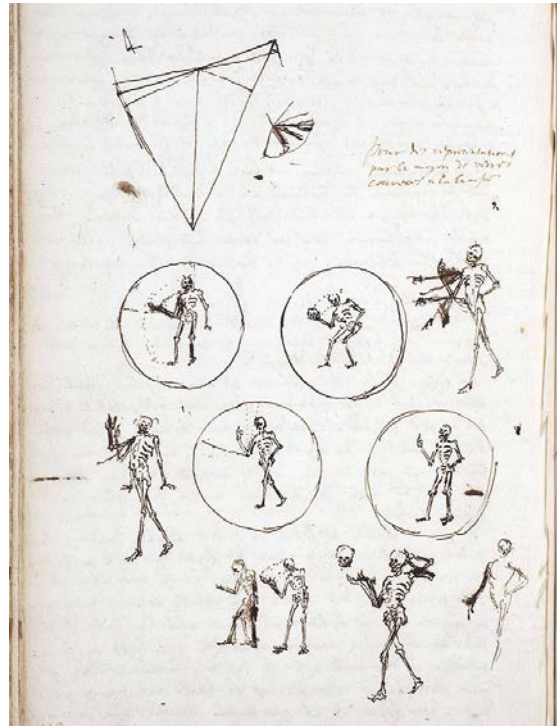 pour des representations
par le moyen de verres
convexes à la lampe